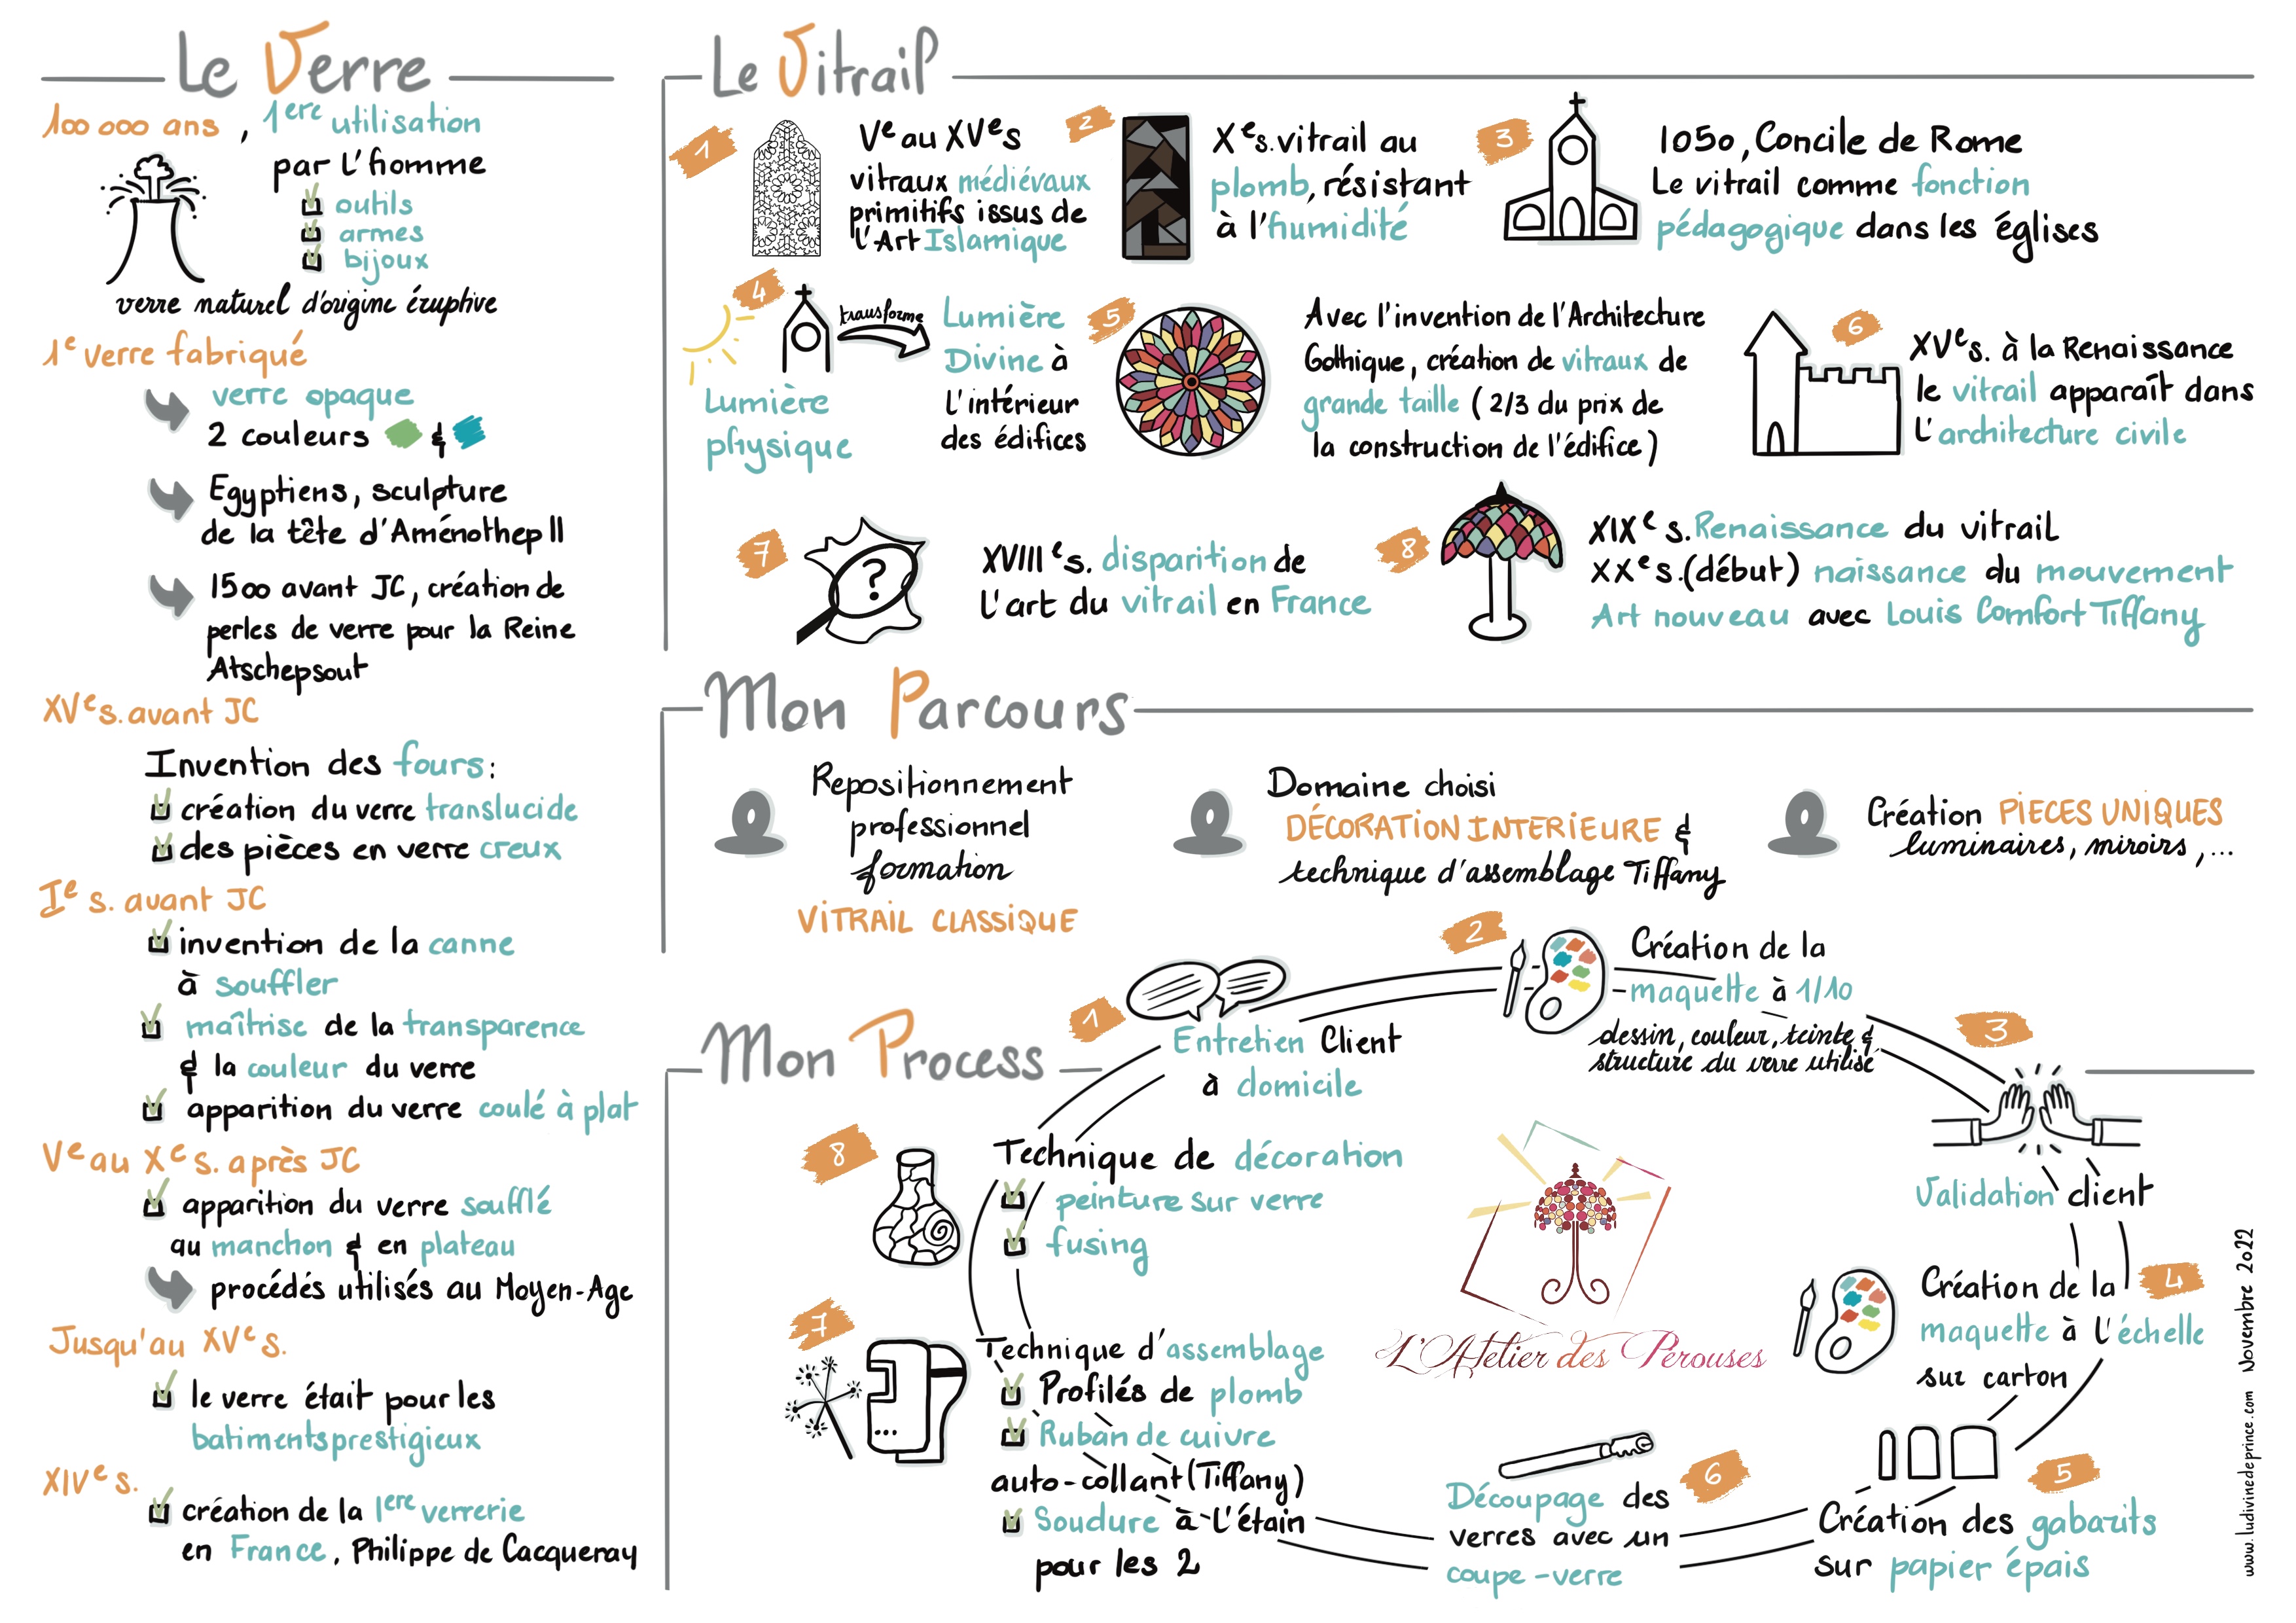 Le Verre
100 000 ans, 1ere utilisation
par l'homme
outils
armes
bijoux
verre naturel d'origine éruptive
1e verre fabriqué
verre opaque
2 couleurs &
Egyptiens, sculpture
de la tête d'Aménothep II
1500 avant JC, création de
perles de verre pour la Reine
Atschepsout
XVe s. avant JC
Invention des fours :
création du verre translucide
des pièces en verre creux
Ie s. avant JC
invention de la canne
à souffler
maîtrise de la transparence
& la couleur du verre
apparition du verre coulé à plat
Ve au Xe s. après JC
apparition du verre soufflé
au manchon & en plateau
procédés utilisés au Moyen-Age
Jusqu'au XVe s.
le verre était pour les
batiments prestigieux
XIVe s.
création de la 1ere verrerie
en France, Philippe de Cacqueray
Le Vitrail
1
Ve au XVe s
vitraux médiévaux
primitifs issus de
l'Art Islamique
2
Xe s. vitrail au
plomb, résistant
à l'humidité
3
1050, Concile de Rome
Le vitrail comme fonction
pédagogique dans les églises
4
Lumière
physique
transforme
Lumière
Divine à
l'intérieur
des édifices
5
Avec l'invention de l'Architecture
Gothique, création de vitraux de
grande taille (2/3 du prix de
la construction de l'édifice)
6
XVe s. à la Renaissance
le vitrail apparaît dans
l'architecture civile
7
?
XVIIIe s. disparition de
l'art du vitrail en France
8
XIXe s. Renaissance du vitrail
XXe s. (début) naissance du mouvement
Art nouveau avec Louis Comfort Tiffany
Mon Parcours
Repositionnement
professionnel
formation
VITRAIL CLASSIQUE
Domaine choisi
DÉCORATION INTERIEURE &
technique d'assemblage Tiffany
Création PIECES UNIQUES
luminaires, miroirs, ...
Mon Process
1
Entretien Client
à domicile
2
Création de la
maquette à 1/10
dessin, couleur, teinte &
structure du verre utilisé
3
Validation client
4
Création de la
maquette à l'échelle
sur carton
5
Création des gabarits
sur papier épais
6
Découpage des
verres avec un
coupe-verre
7
Technique d'assemblage
Profilés de plomb
Ruban de cuivre
auto-collant (Tiffany)
Soudure à l'étain
pour les 2
8
Technique de décoration
peinture sur verre
fusing
L'Atelier des Perouses
www.ludivinedeprince.com Novembre 2022